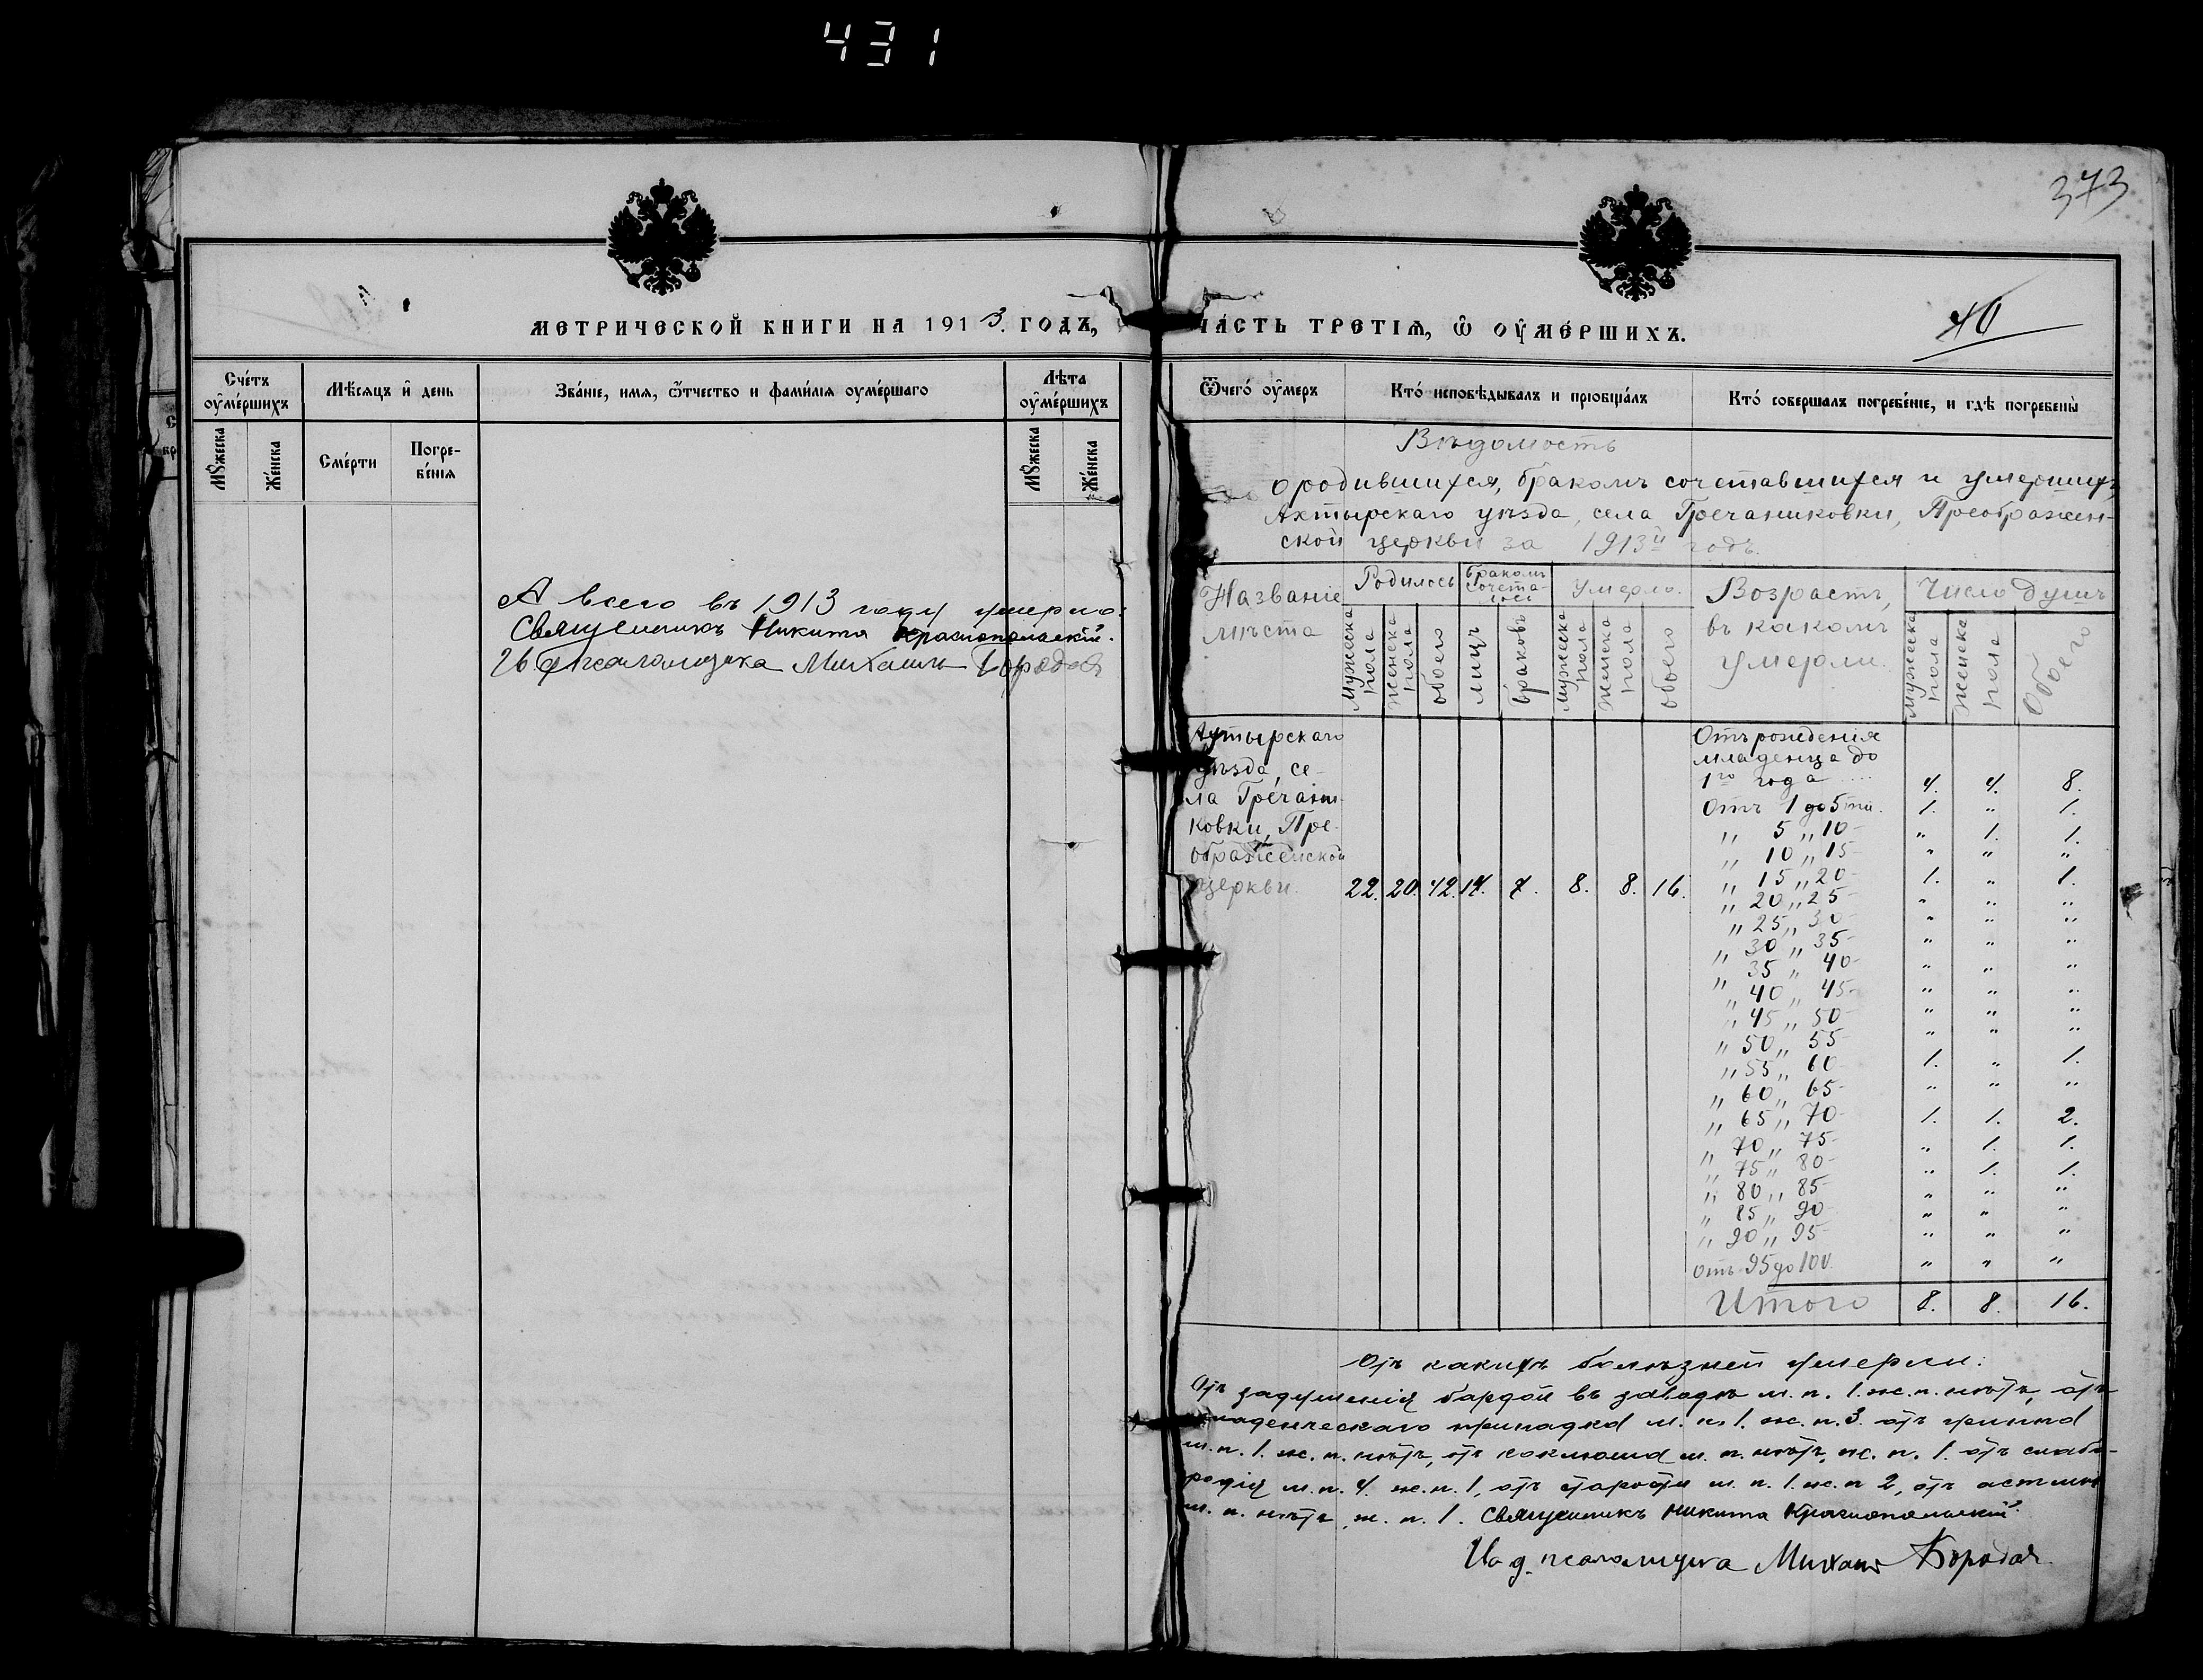 431
373
40
МЕТРИЧЕСКОЙ КНИГИ НА 1913. ГОДЪ,
Сче́тъ оу҆ме́ршихъ
Мѣ́сяцъ и҆ день
Зва́нїе, имя, ѿтчество и фами́лїя оуме́ршаго
Лѣта оу҆ме́ршихъ
Мꙋ́жеска
Же́нска
Сме́рти
Погребе́нїя
Мꙋ́жеска
Же́нска
А всего въ 1913 году умерло:
Священникъ Никита Краснопольскій.
Псаломщика Михаилъ Бородай
ЧА́СТЬ ТРЕТІѦ, Ѡ҆ ОУ҆МЕ́РШИХЪ.
Ѿчего́ оу҆меръ
Кто́ исповѣ́дывалъ и прїобща́лъ
Кто́ соверша́лъ погребе́нїе, и гдѣ̀ погребены̀
Вѣдомость
о родившихся, бракомъ сочетавшихся и умершихъ
Ахтырскаго уѣзда, села Гречаниковки, Преображен-
ской церкви за 1913й годъ.
Названіе мѣста
Родилось
Бракомъ сочета-лось
Умерло.
Возрастъ, въ какомъ умерли.
Число душъ
Мужеска пола
Женска пола
обоего
лицъ
браковъ
Мужеска пола
Женска пола
обоего
Мужеска пола
Женска пола
Обоего
Ахтырскаго
уѣзда, се-
ла Гречани-
ковки, Пре-
ображенской
церкви. 22. 20. 42. 14. 7. 8. 8. 16.
Отъ рожденія
младенца до
1го года .... 4. 4. 8.
Отъ 1 до 5ти. 1. " 1.
" 5 " 10- " 1. 1.
" 10 " 15- " " "
" 15 " 20- 1. " 1.
" 20 " 25- " " "
" 25 " 30- " " "
" 30 " 35- " " "
" 35 " 40- " " "
" 40 " 45- " " "
" 45 " 50- " " "
" 50 " 55- " " "
" 55 " 60- 1. " 1.
" 60 " 65- " " "
" 65 " 70- 1. 1. 2.
" 70 " 75- " 1. 1.
" 75 " 80- " 1. 1.
" 80 " 85- " " "
" 85 " 90- " " "
" 90 " 95- " " "
Отъ 95 до 100 " " "
Итого 8. 8. 16.
Отъ какихъ болѣзней умерли:
Отъ задушенія бардой въ заводѣ м. п. 1. ж. п. нѣтъ, отъ
младенческаго припадка м. п. 1. ж. п. 3. отъ
м. п. 1. ж. п. нѣтъ, отъ коклюша м. п. нѣтъ, ж. п. 1. отъ слабо-
родія м. п. 4. ж. п. 1, отъ старости м. п. 1. ж. п 2, отъ астмы
м. п. нѣтъ, ж. п. 1. Священникъ Никита Краснопольскій.
И. д. псаломщика Михаилъ Бородай